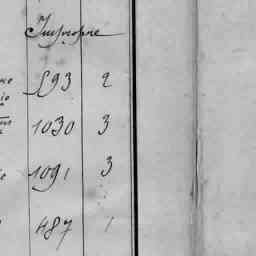 Impropre
593 2
1030 3
1091 3
487 1